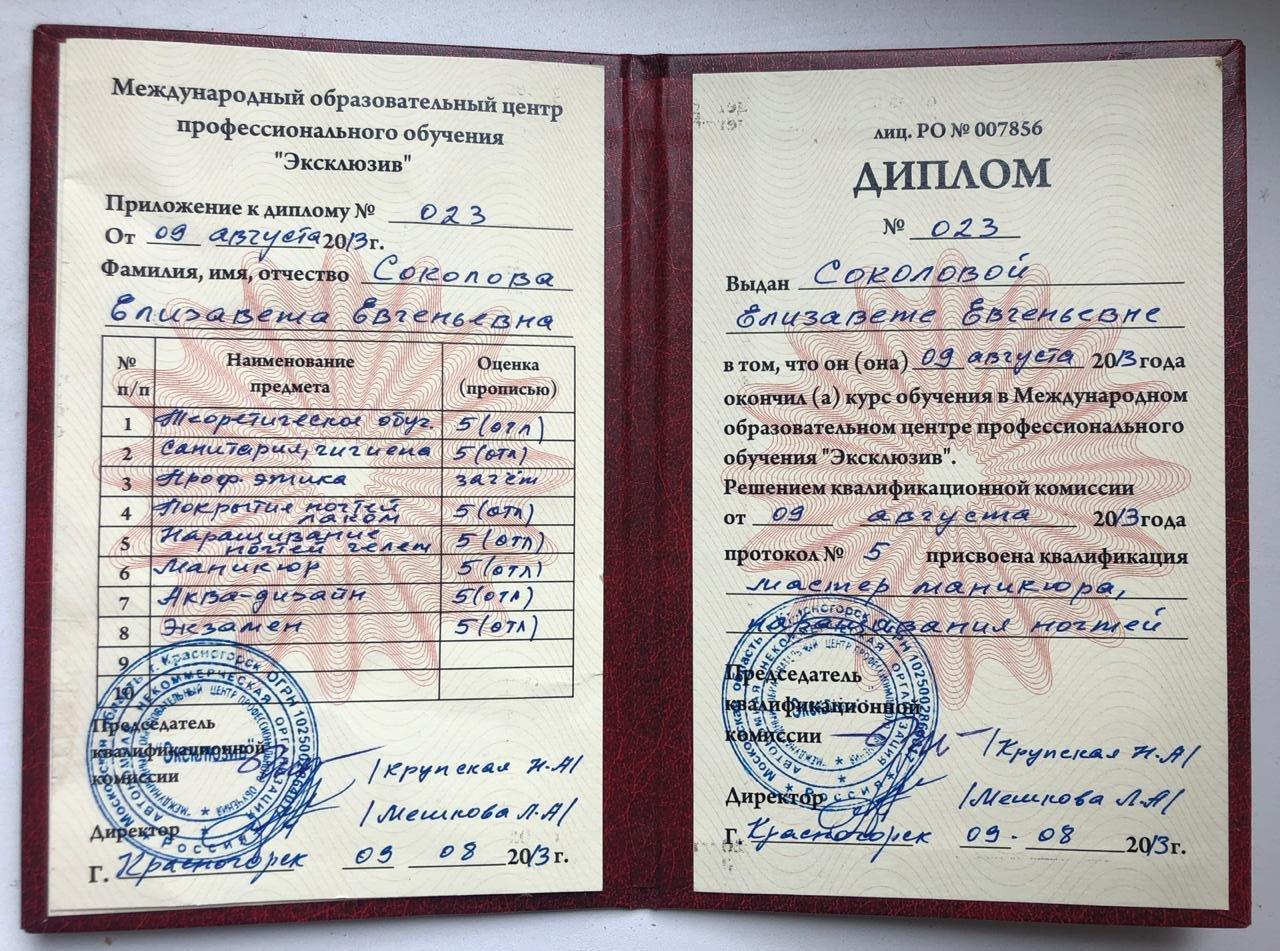 Международный образовательный центр
профессионального обучения
"Эксклюзив"
Приложение к диплому № 023
От 09 августа 2013 г.
Фамилия, имя, отчество Соколова
Елизавета Евгеньевна
№ п/п Наименование предмета Оценка (прописью)
1 Теоретическое обуч. 5 (отл)
2 Санитария, гигиена 5 (отл)
3 Проф. этика зачёт
4 Покрытие ногтей лаком 5 (отл)
5 Наращивание ногтей гелем 5 (отл)
6 Маникюр 5 (отл)
7 Аква-дизайн 5 (отл)
8 Экзамен 5 (отл)
9
10
Председатель
квалификационной
комиссии /Крупская Н.А/
Директор /Мешкова Л.А/
Г. Красногорск 09 08 2013 г.
лиц. РО № 007856
ДИПЛОМ
№ 023
Выдан Соколовой
Елизавете Евгеньевне
в том, что он (она) 09 августа 2013 года
окончил (а) курс обучения в Международном
образовательном центре профессионального
обучения "Эксклюзив".
Решением квалификационной комиссии
от 09 августа 2013 года
протокол № 5 присвоена квалификация
мастер маникюра,
наращивания ногтей
Председатель
квалификационной
комиссии /Крупская Н.А/
Директор /Мешкова Л.А/
Г. Красногорск 09. 08 2013 г.